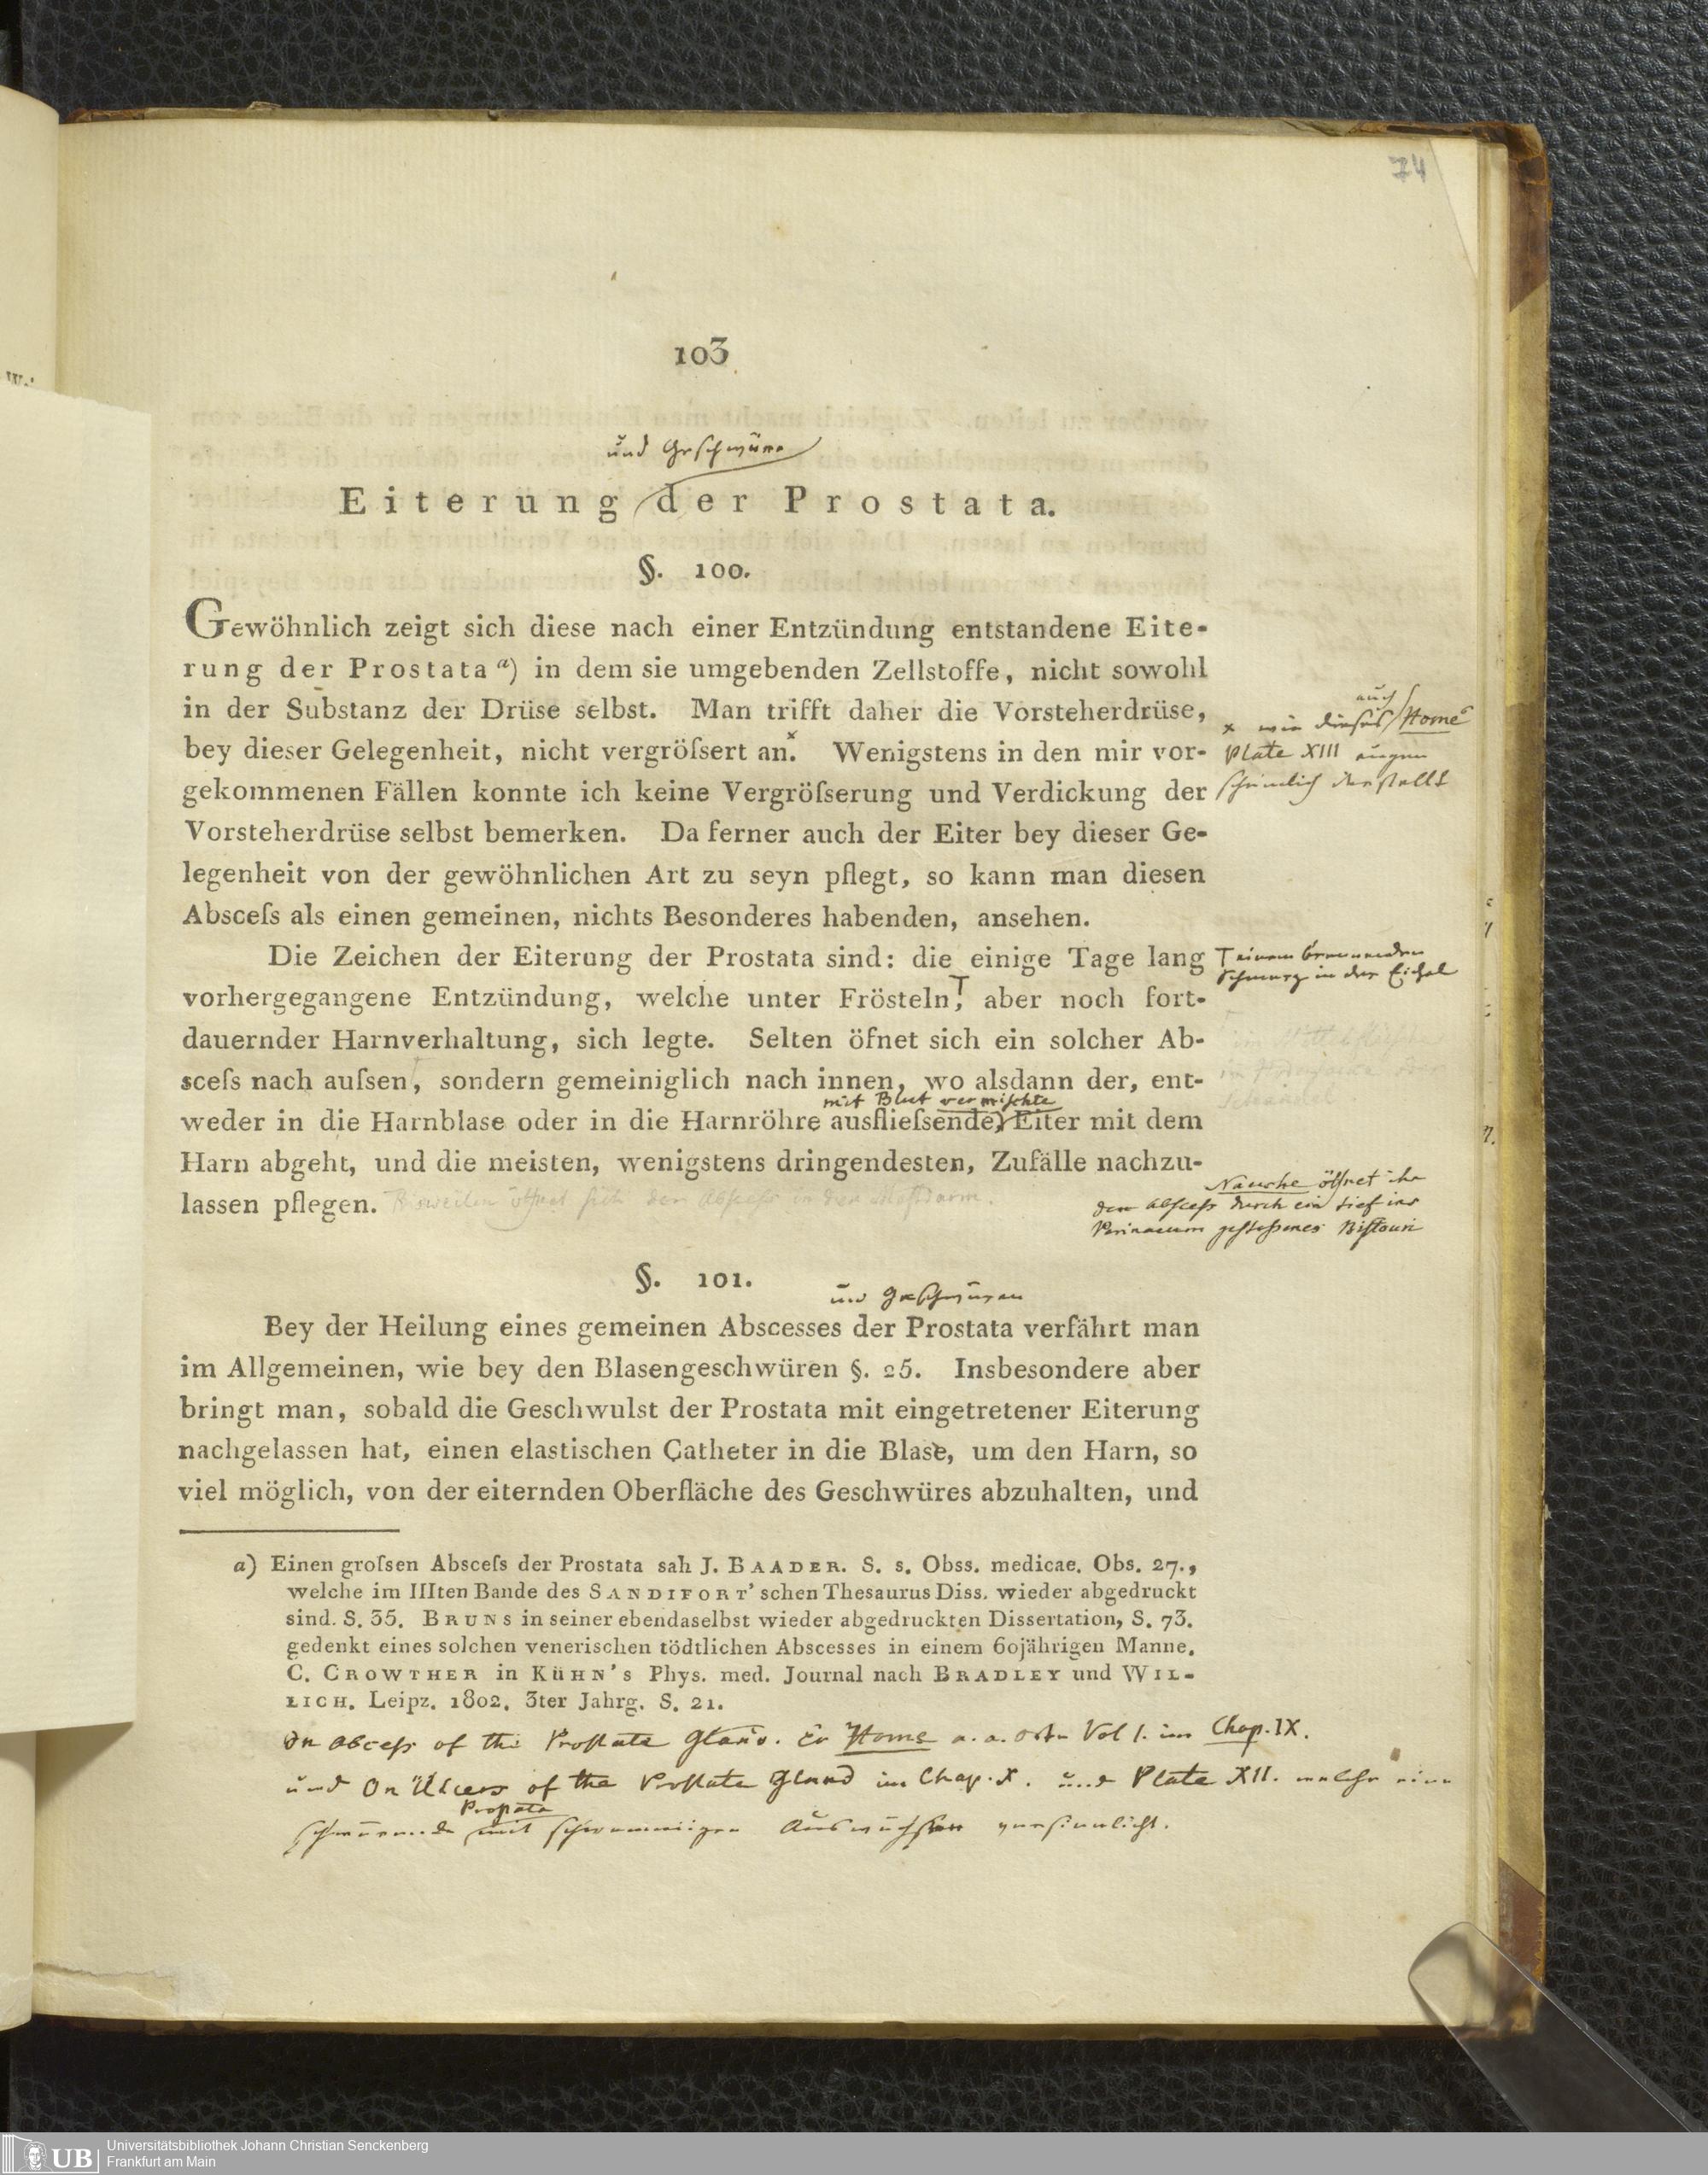 74
103
und Geschwüre
Eiterung der Prostata.
§. 100.
Gewöhnlich zeigt sich diese nach einer Entzündung entstandene Eite-
rung der Prostata a) in dem sie umgebenden Zellstoffe, nicht sowohl
in der Substanz der Drüse selbst. Man trifft daher die Vorsteherdrüse,
bey dieser Gelegenheit, nicht vergröſsert an.x Wenigstens in den mir vor-
gekommenen Fällen konnte ich keine Vergröſserung und Verdickung der
Vorsteherdrüse selbst bemerken. Da ferner auch der Eiter bey dieser Ge-
legenheit von der gewöhnlichen Art zu seyn pflegt, so kann man diesen
Absceſs als einen gemeinen, nichts Besonderes habenden, ansehen.
x wie dieses auch Home
Plate XIII augen
scheinlich darstellt
Die Zeichen der Eiterung der Prostata sind: die einige Tage lang
vorhergegangene Entzündung, welche unter Frösteln,T aber noch fort-
dauernder Harnverhaltung, sich legte. Selten öfnet sich ein solcher Ab-
sceſs nach auſsen, sondern gemeiniglich nach innen, wo alsdann der, ent-
mit Blut vermischte
weder in die Harnblase oder in die Harnröhre ausflieſsende, Eiter mit dem
Harn abgeht, und die meisten, wenigstens dringendesten, Zufälle nachzu-
lassen pflegen. Bisweilen öffnet sich der Absceſs in den Mastdarm.
T einem brennenden
Schmerz in der Eichel
im Mittelfleische
im
Nauche öffnet ihn
den Absceſs durch ein tief ins
Perinaeum gestoſsenes Bistouri
§. 101.
und Geschwüren
Bey der Heilung eines gemeinen Abscesses der Prostata verfährt man
im Allgemeinen, wie bey den Blasengeschwüren §. 25. Insbesondere aber
bringt man, sobald die Geschwulst der Prostata mit eingetretener Eiterung
nachgelassen hat, einen elastischen Catheter in die Blase, um den Harn, so
viel möglich, von der eiternden Oberfläche des Geschwüres abzuhalten, und
a) Einen groſsen Absceſs der Prostata sah J. BAADER. S. s. Obss. medicae. Obs. 27.,
welche im IIIten Bande des SANDIFORT'schen Thesaurus Diss. wieder abgedruckt
sind. S. 35. BRUNS in seiner ebendaselbst wieder abgedruckten Dissertation, S. 73.
gedenkt eines solchen venerischen tödtlichen Abscesses in einem 60jährigen Manne.
C. CROWTHER in KÜHN's Phys. med. Journal nach BRADLEY und WIL-
LICH. Leipz. 1802. 3ter Jahrg. S. 21.
On Abcess of the Prostate Gland. Ev Home a. a. Orte Vol I. im Chap. IX.
und On Ulcers of the Prostate Gland im Chap. X. und Plate XII. welche eine
Prostata
schwärende mit schwammigen Auswüchsen versinnlicht.
UB
Universitätsbibliothek Johann Christian Senckenberg
Frankfurt am Main